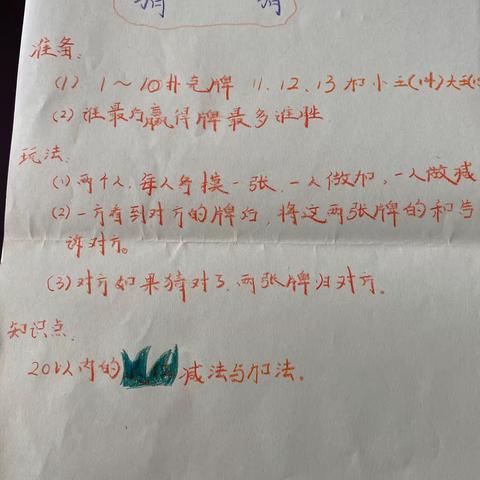 准备:
(1) 1~10扑克牌 11.12.13加小王(14)大王(15
(2) 谁最后赢得牌最多谁胜
玩法:
(1) 两个人,每人各摸一张.一人做加,一人做减
(2) 一方看到对方的牌后,将这两张牌的和告
诉对方。
(3) 对方如果猜对了.两张牌归对方。
知识点.
20以内的 减法与加法。